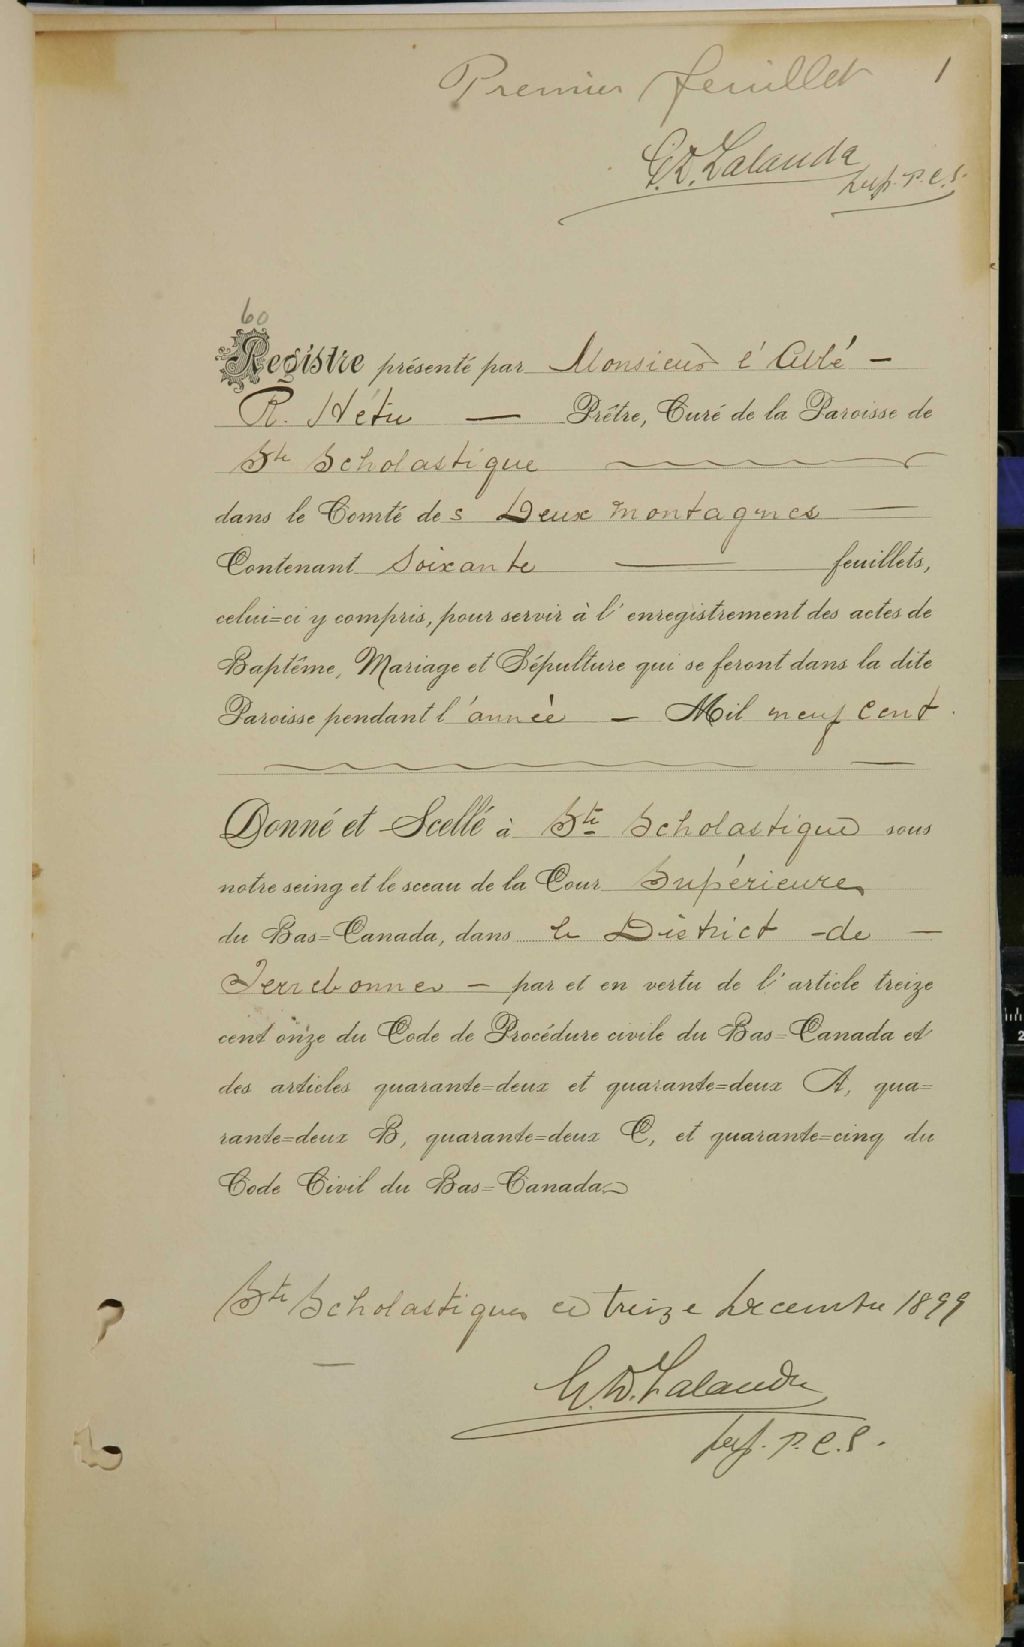 Premier feuillet 1
G.D. Lalande
Dep. P.C.S.
60
Registre présenté par Monsieur l'Abbé —
R. Hétu — Prêtre, Curé de la Paroisse de
Ste Scholastique
dans le Comté des Deux montagnes —
Contenant Soixante — feuillets,
celui=ci y compris, pour servir à l'enregistrement des actes de
Baptême, Mariage et Sépulture qui se feront dans la dite
Paroisse pendant l'année — Mil neuf cent.
Donné et Scellé à Ste Scholastique sous
notre seing et le sceau de la Cour Supérieure
du Bas=Canada, dans le District de —
Terrebonne — par et en vertu de l'article treize
cent onze du Code de Procédure civile du Bas=Canada et
des articles quarante=deux et quarante=deux A, qua=
rante=deux B, quarante=deux C, et quarante=cinq du
Code Civil du Bas=Canada
Ste Scholastique ce treize Decembre 1899
—
G.D. Lalande
Dep. P.C.S.